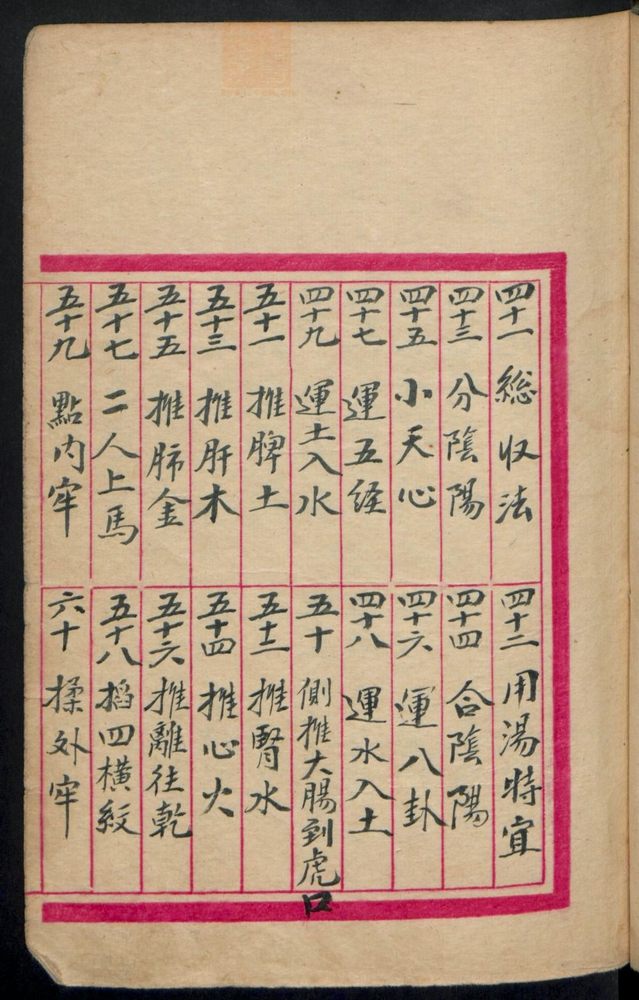 四十一 總収法
四十二 用湯時宜
四十三 分陰陽
四十四 合陰陽
四十五 小天心
四十六 運八卦
四十七 運五経
四十八 運水入土
四十九 運土入水
五十 側推大腸到虎口
五十一 推脾土
五十二 推腎水
五十三 推肝木
五十四 推心火
五十五 推肺金
五十六 推離往乾
五十七 二人上馬
五十八 掐四橫紋
五十九 點內牢
六十 揉外牢